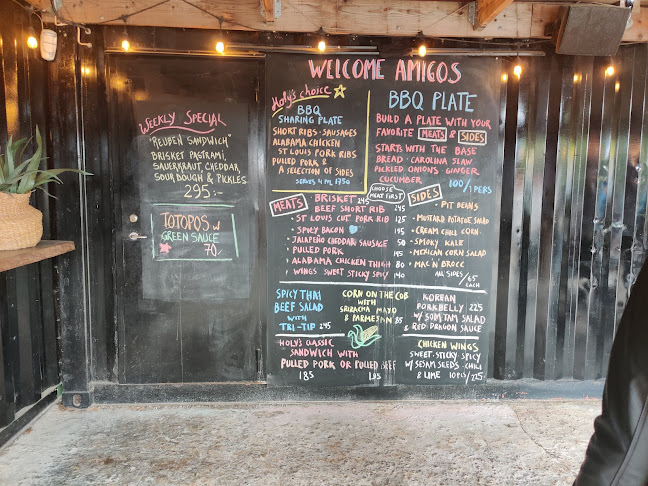 WEEKLY SPECIAL
"REUBEN SANDWICH"
BRISKET PASTRAMI,
SAUERKRAUT, CHEDDAR,
SOURDOUGH & PICKLES.
295:-
TOTOPOS W
GREEN SAUCE
70,-
WELCOME AMIGOS
HOLY'S CHOICE
BBQ
SHARING PLATE
SHORT RIBS - SAUSAGES
ALABAMA CHICKEN
ST LOUIS PORK RIBS
PULLED PORK &
A SELECTION OF SIDES
SERVES 4 PM, 1750
BBQ PLATE
BUILD A PLATE WITH YOUR
FAVORITE MEATS & SIDES
STARTS WITH THE BASE
BREAD - CAROLINA SLAW
PICKLED ONIONS - GINGER
CUCUMBER
100/1PERS
CHOOSE
MEAT FIRST
MEATS
• BRISKET 245
BEEF SHORT RIB 245
• ST LOUIS CUT PORK RIB 125
• SPICY BACON
• JALAPEÑO CHEDDAR SAUSAGE 50
• PULLED PORK
• ALABAMA CHICKEN THIGH 80
• WINGS SWEET STICKY SPICY 140
SIDES
• PIT BEANS
• MUSTARD POTATOE SALAD
• CREAM CHILI CORN
• SMOKY KALE
• MEXICAN CORN SALAD
• MAC N BROCC
ALL SIDES /65
EACH
SPICY THAI
BEEF SALAD
WITH
TRI-TIP 245
CORN ON THE COB
WITH
SRIRACHA MAYO
& PARMESAN 85
KOREAN
PORKBELLY 225
W/ SOM TAM SALAD
& RED DRAGON SAUCE
HOLY'S CLASSIC
SANDWICH WITH
PULLED PORK OR PULLED BEEF
185 195
CHICKEN WINGS
SWEET-STICKY SPICY
W/ SESAM SEEDS - CHILI
& LIME 10PCS/225